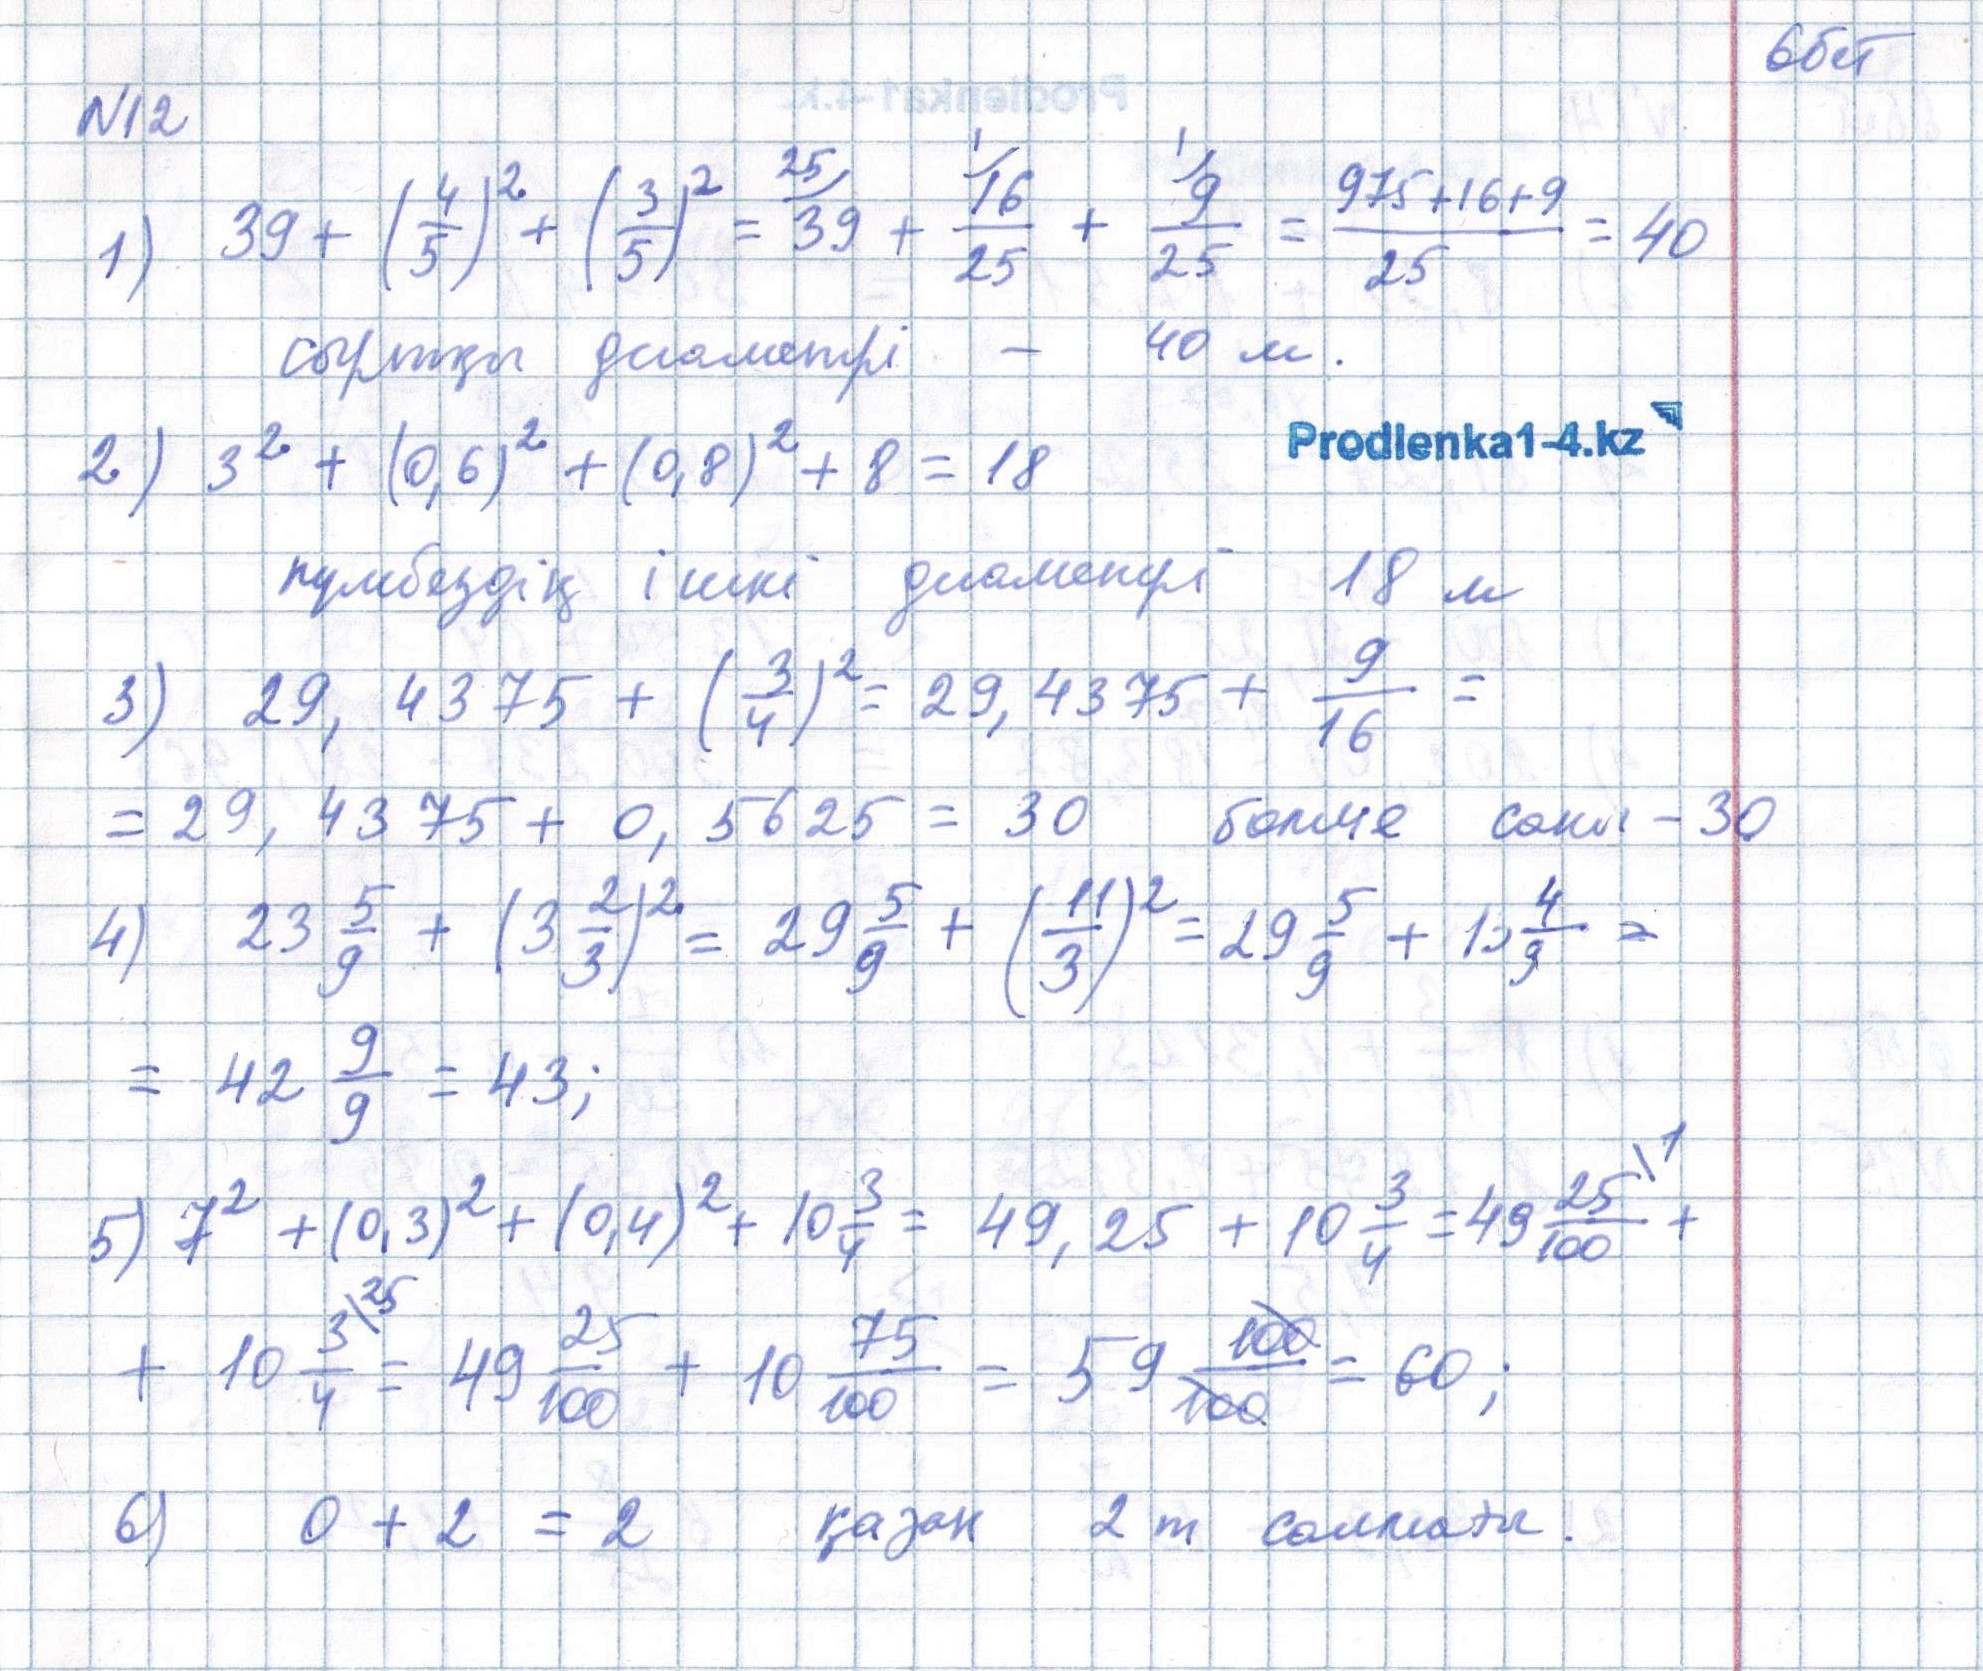 6бет
N12
1) 39 + (4/5)² + (3/5)² = 39 + 16/25 + 9/25 = 975+16+9/25 = 40
сыртқы диаметрі – 40 м.
2) 3² + (0,6)² + (0,8)² + 8 = 18
Prodlenka1-4.kz
күмбездің ішкі диаметрі 18 м
3) 29,4375 + (3/4)² = 29,4375 + 9/16 =
= 29,4375 + 0,5625 = 30 бөлме саны – 30
4) 23 5/9 + (3 2/3)² = 29 5/9 + (11/3)² = 29 5/9 + 13 4/9 =
= 42 9/9 = 43;
5) 7² + (0,3)² + (0,4)² + 10 3/4 = 49,25 + 10 3/4 = 49 25/100 \1 +
+ 10 3/4 \25 = 49 25/100 + 10 75/100 = 59 100/100 = 60;
6) 0 + 2 = 2 қазан 2 т салмағы.